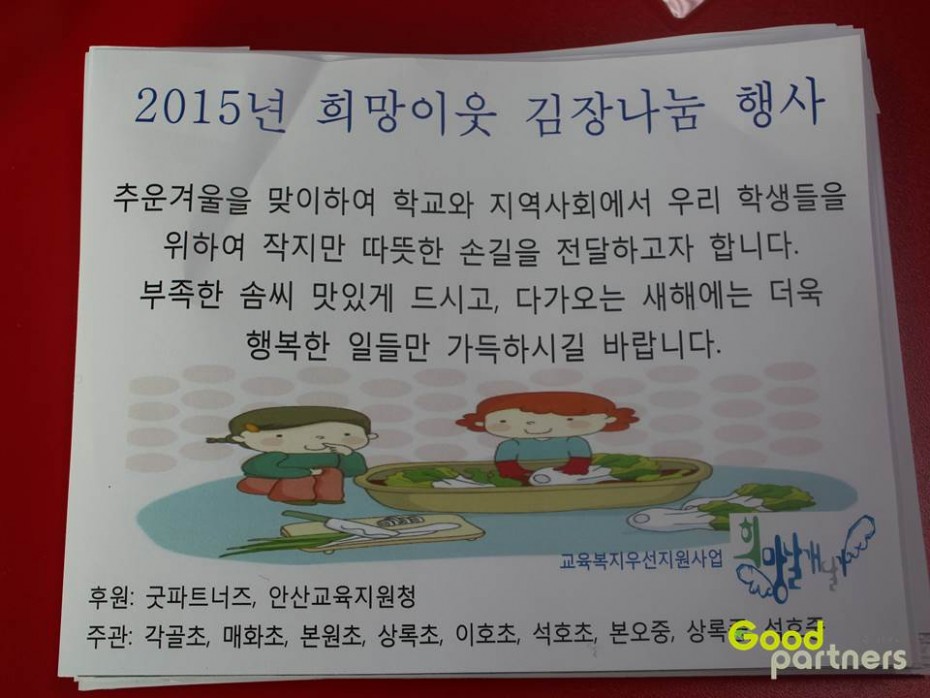 2015년 희망이웃 김장나눔 행사
추운겨울을 맞이하여 학교와 지역사회에서 우리 학생들을
위하여 작지만 따뜻한 손길을 전달하고자 합니다.
부족한 솜씨 맛있게 드시고, 다가오는 새해에는 더욱
행복한 일들만 가득하시길 바랍니다.
교육복지우선지원사업
희망날개달기
후원: 굿파트너즈, 안산교육지원청
주관: 각골초, 매화초, 본원초, 상록초, 이호초, 석호초, 본오중, 상록중, 성호중
Good
partners